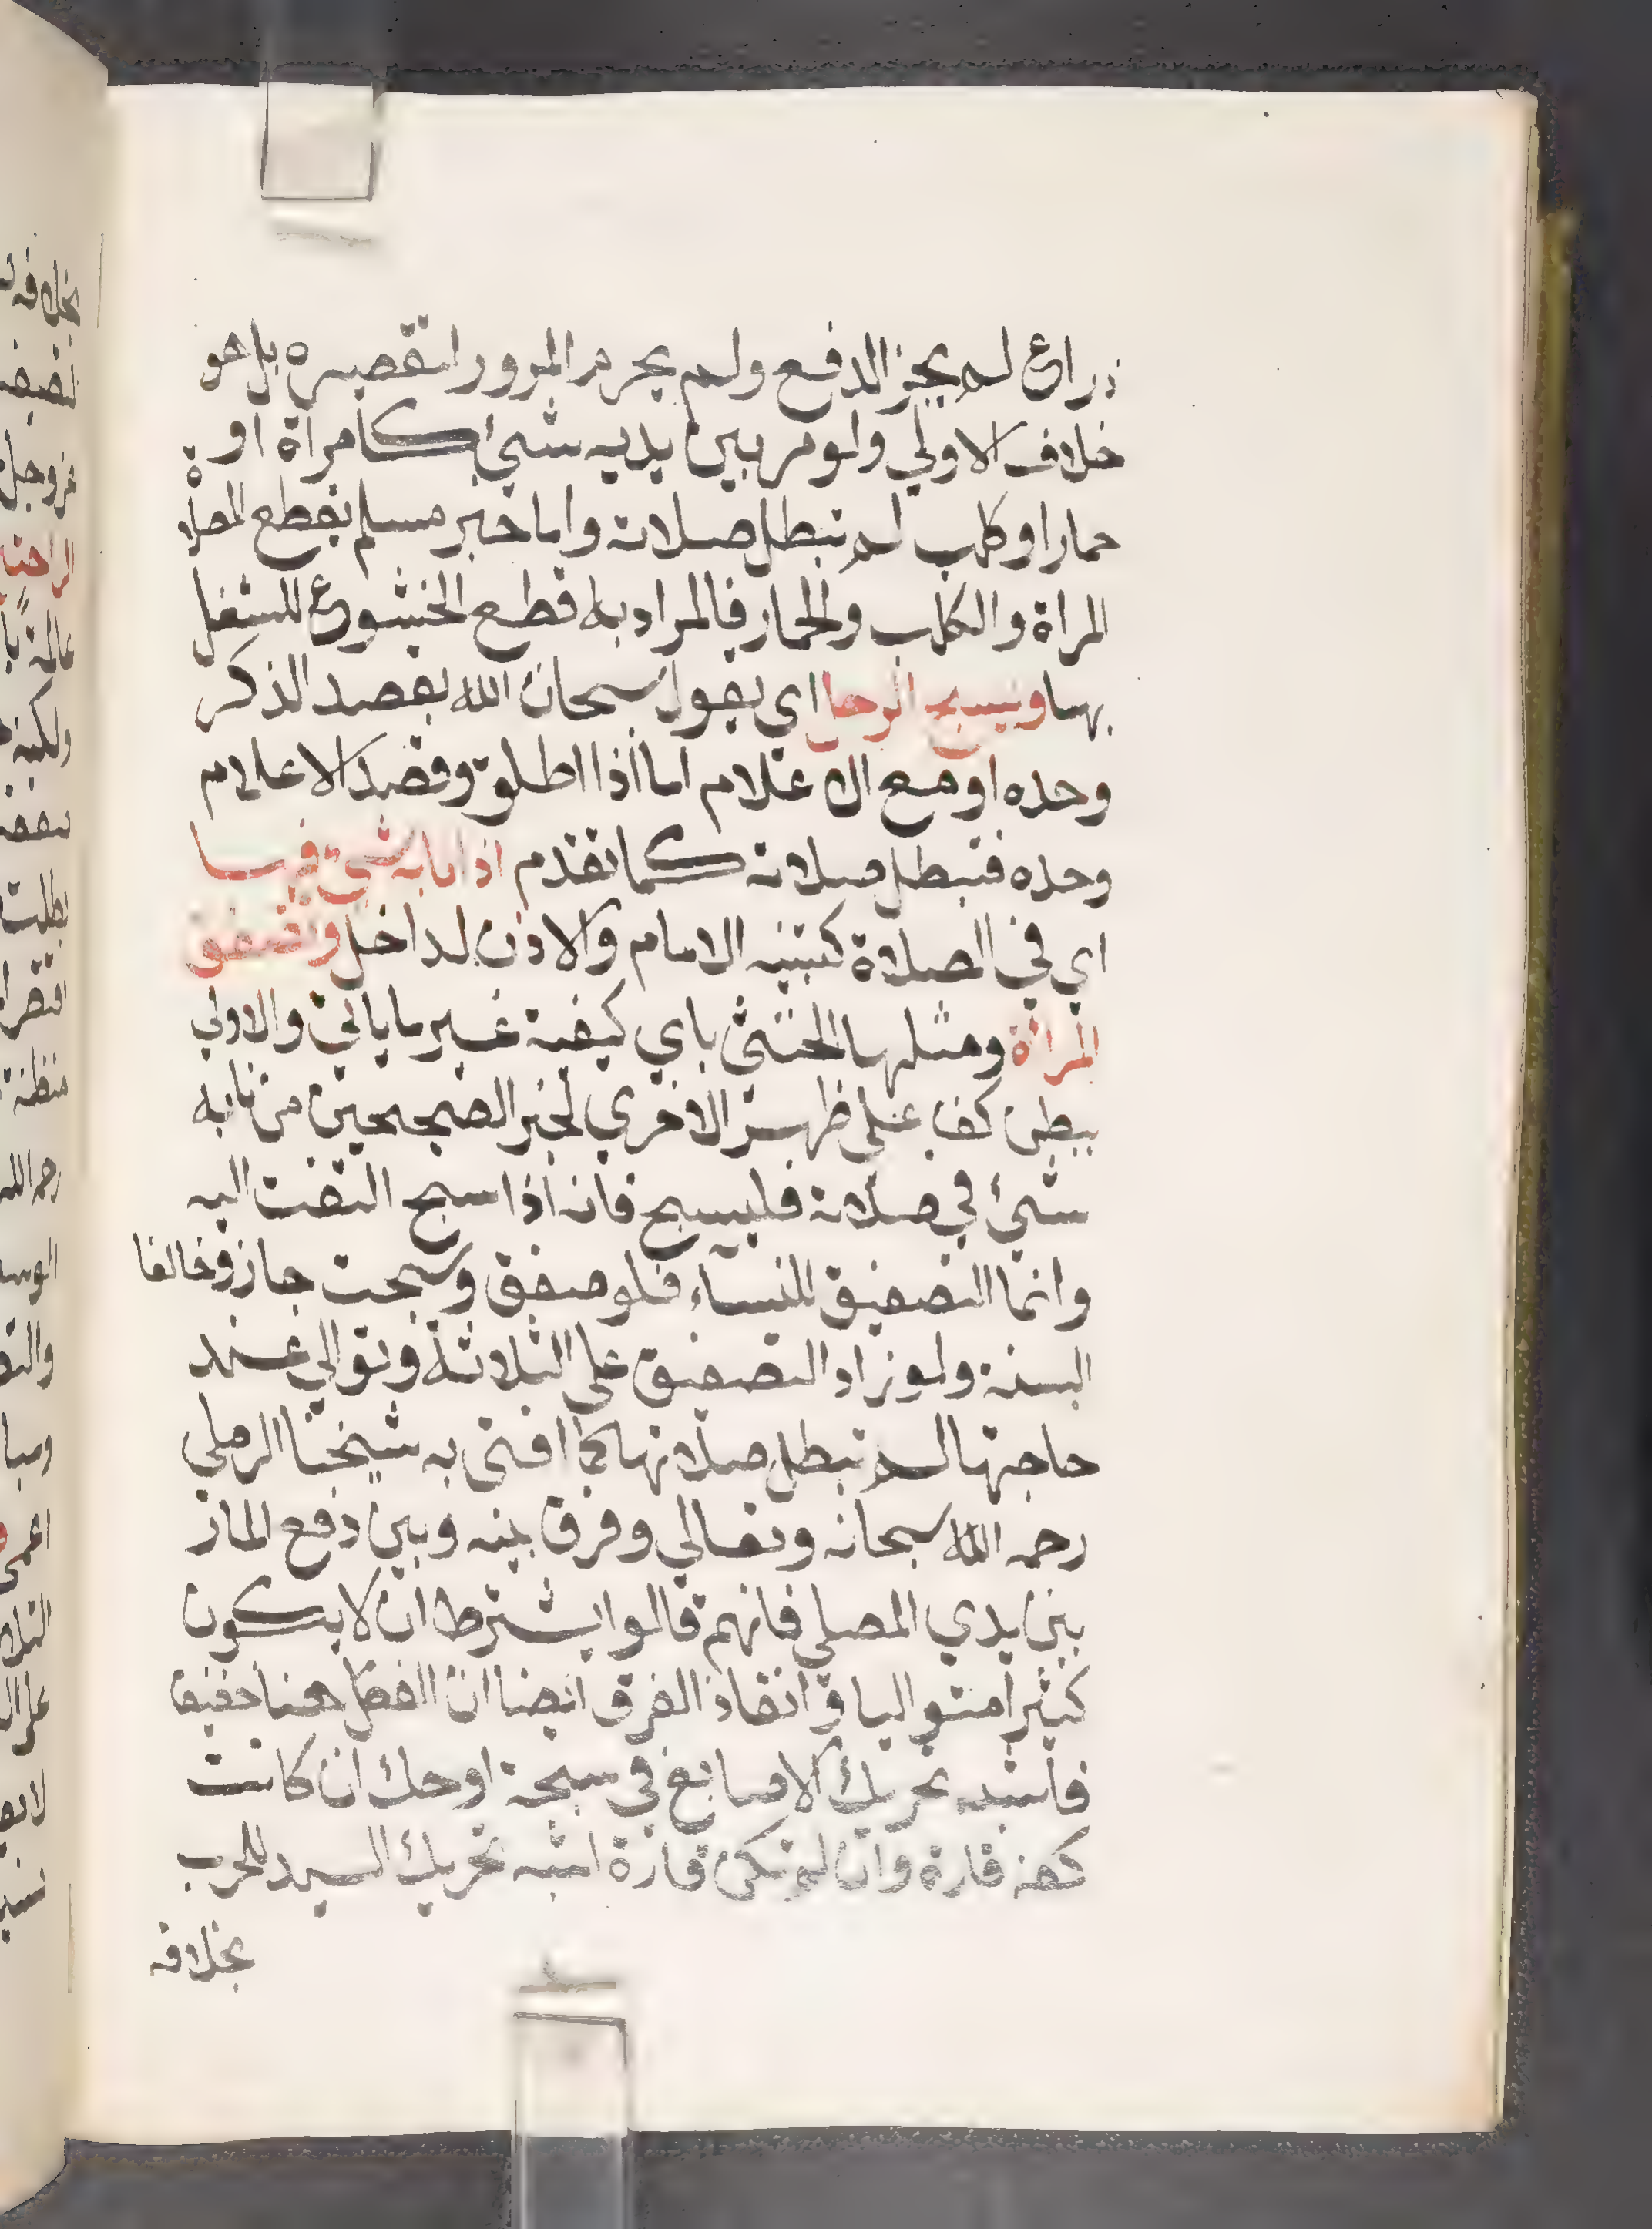 ذراع لم يجز الدفع ولم يحرم المرور لتقصيره بل هو
خلاف الاولي ولو مر بين يديه شيئ كامراة او
حمار او كلب لم تبطل صلاته واما خبر مسلم يقطع الصلاة
المراة والكلب والحمار فالمراد به قطع الخشوع للشغل
بها ويسبح الرجل اي يقول سبحان الله بقصد الذكر
وحده او مع الاعلام اما اذا اطلق وقصد الاعلام
وحده فتبطل صلاته كما تقدم اذا نابه شيئ فيها
اي في الصلاة كتنبيه الامام والاذن لداخل وتصفق
المراة ومثلها الخنثى باي كيفية غير ما ياتي والاولي
ببطن كف على ظهر الاخري لخبر الصحيحين من نابه
شيئ في صلاته فليسبح فانه اذا سبح التفت اليه
وانما التصفيق للنساء فلو صفق وسبحت جاز وخالفا
السنة ولو زاد التصفيق على الثلاثة وتوالي عند
حاجتها لم تبطل صلاتها كما افتى به شيخنا الرملي
رحمه الله سبحانه وتعالي وفرق بينه وبين دفع المار
بين يدي المصلي فانهم قالوا يشترط ان لا يكون
كثيرا متواليا و الفرق ايضا ان الفعل هنا خفيف
فاشبه تحريك الاصابع في سبحة او حك ان كانت
كفه قارة وان لم تكن قارة اشبه تحريك اليد للجرب
بخلافه